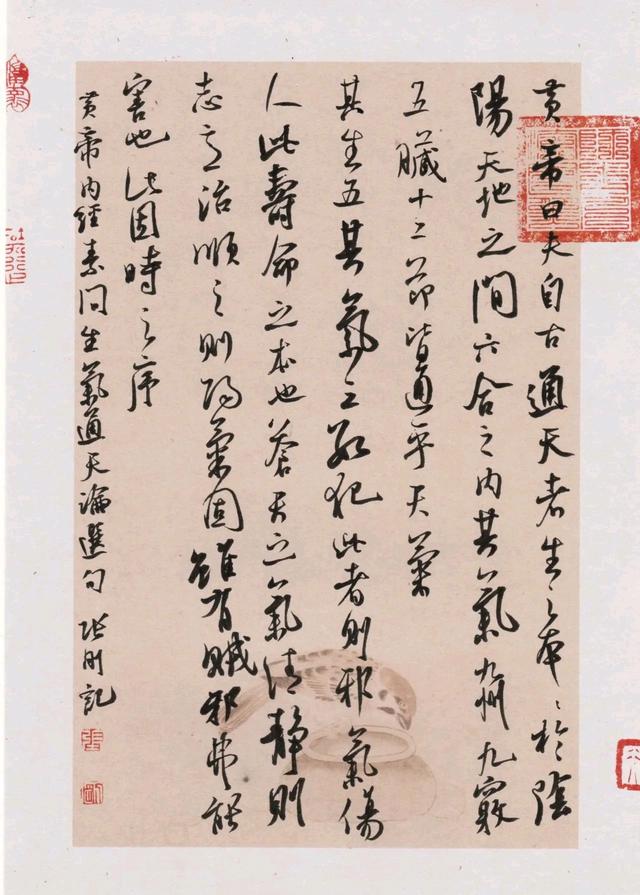 黄帝曰夫自古通天者生之本〻於陰
陽天地之間六合之内其氣九州九竅
五臟十二節皆通乎天氣
其生五其氣三數犯此者則邪氣傷
人此壽命之本也蒼天之氣清静則
志意治順之則陽氣固雖有賊邪弗能
害也此因時之序
黄帝内經素問生氣通天論選句 張刚記